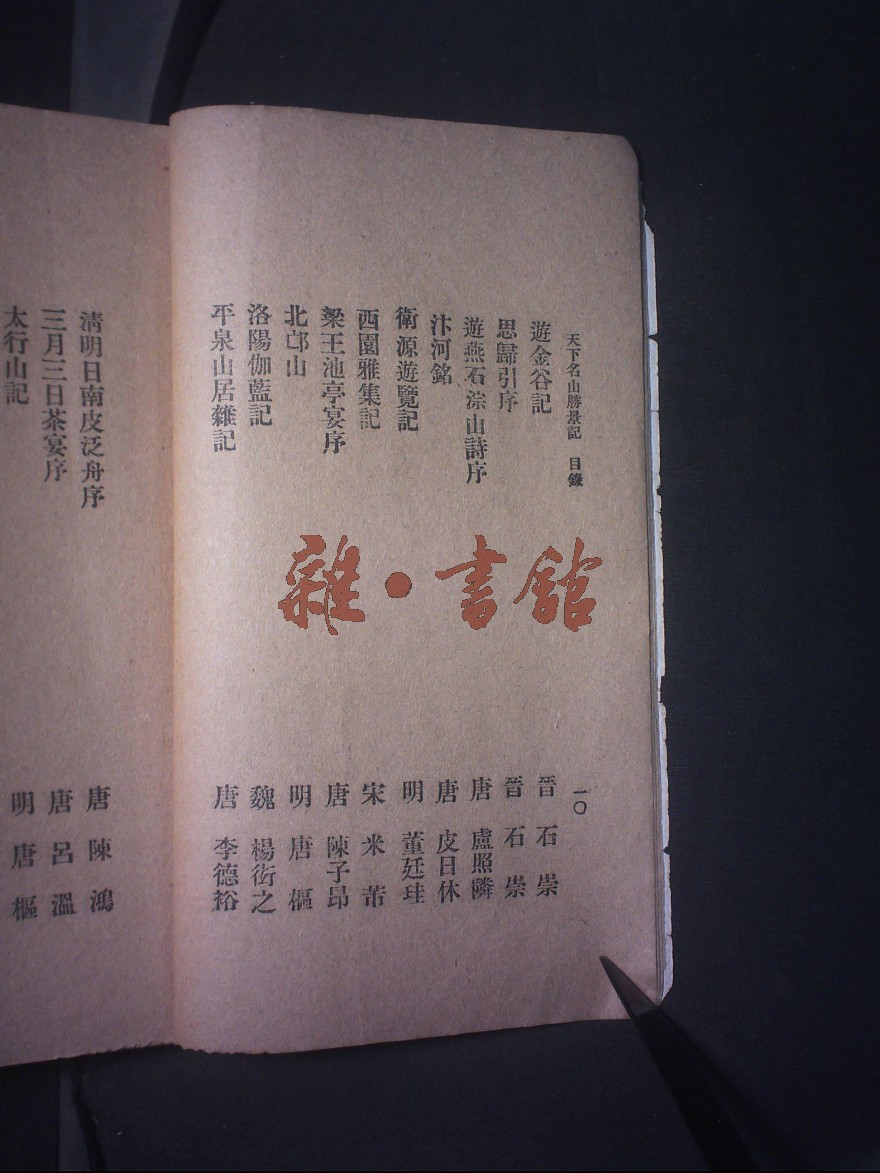 天下名山勝景記 目錄 一〇
遊金谷記 晉 石崇
思歸引序 晉 石崇
遊燕石淙山詩序 唐 盧照隣
汴河銘 唐 皮日休
衛源遊覽記 明 董廷珪
西園雅集記 宋 米芾
梁王池亭宴序 唐 陳子昂
北邙山 明 唐樞
洛陽伽藍記 魏 楊衒之
平泉山居雜記 唐 李德裕
清明日南皮泛舟序 唐 陳鴻
三月三日茶宴序 唐 呂溫
太行山記 明 唐樞
雜·書館